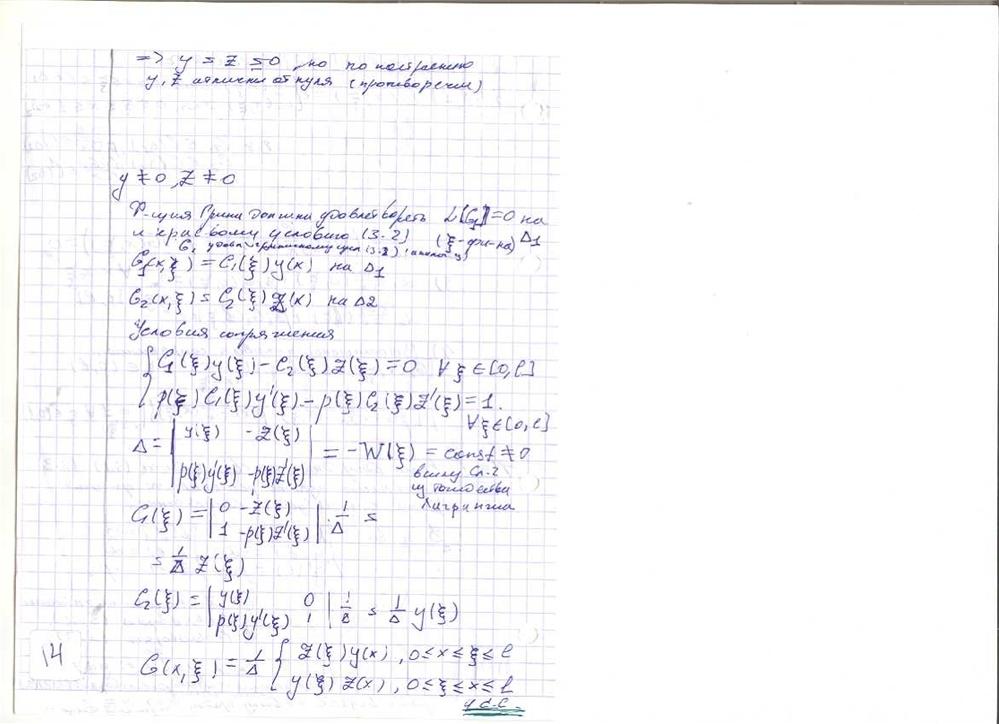 => y = z ≡ 0, но по построению
y, z отличны от нуля (противоречие)
y ≠ 0, z ≠ 0
Ф-ция Грина должна удовлетворять L[G₁]=0 на Δ1
и краевому условию (3.2) (ξ-фи-на)
G₁(x,ξ) = C₁(ξ) y(x) на Δ1
G₂(x,ξ) = C₂(ξ) z(x) на Δ2
Условия сопряжения
{ C₁(ξ)y(ξ) − C₂(ξ)z(ξ) = 0 ∀ξ∈[0,l]
p(ξ)C₁(ξ)y'(ξ) − p(ξ)C₂(ξ)z'(ξ) = 1.
∀ξ∈[0,l]
Δ = | y(ξ) −z(ξ) |
| p(ξ)y'(ξ) −p(ξ)z'(ξ) | = −W(ξ) = const ≠ 0
ввиду Сл-2
из тождества
Лагранжа
C₁(ξ) = | 0 −z(ξ) |
| 1 −p(ξ)z'(ξ) | · 1/Δ =
= 1/Δ z(ξ)
C₂(ξ) = | y(ξ) 0 |
| p(ξ)y'(ξ) 1 | 1/Δ = 1/Δ y(ξ)
G(x,ξ) = 1/Δ { z(ξ)y(x), 0≤x≤ξ≤l
y(ξ)z(x), 0≤ξ≤x≤l
14